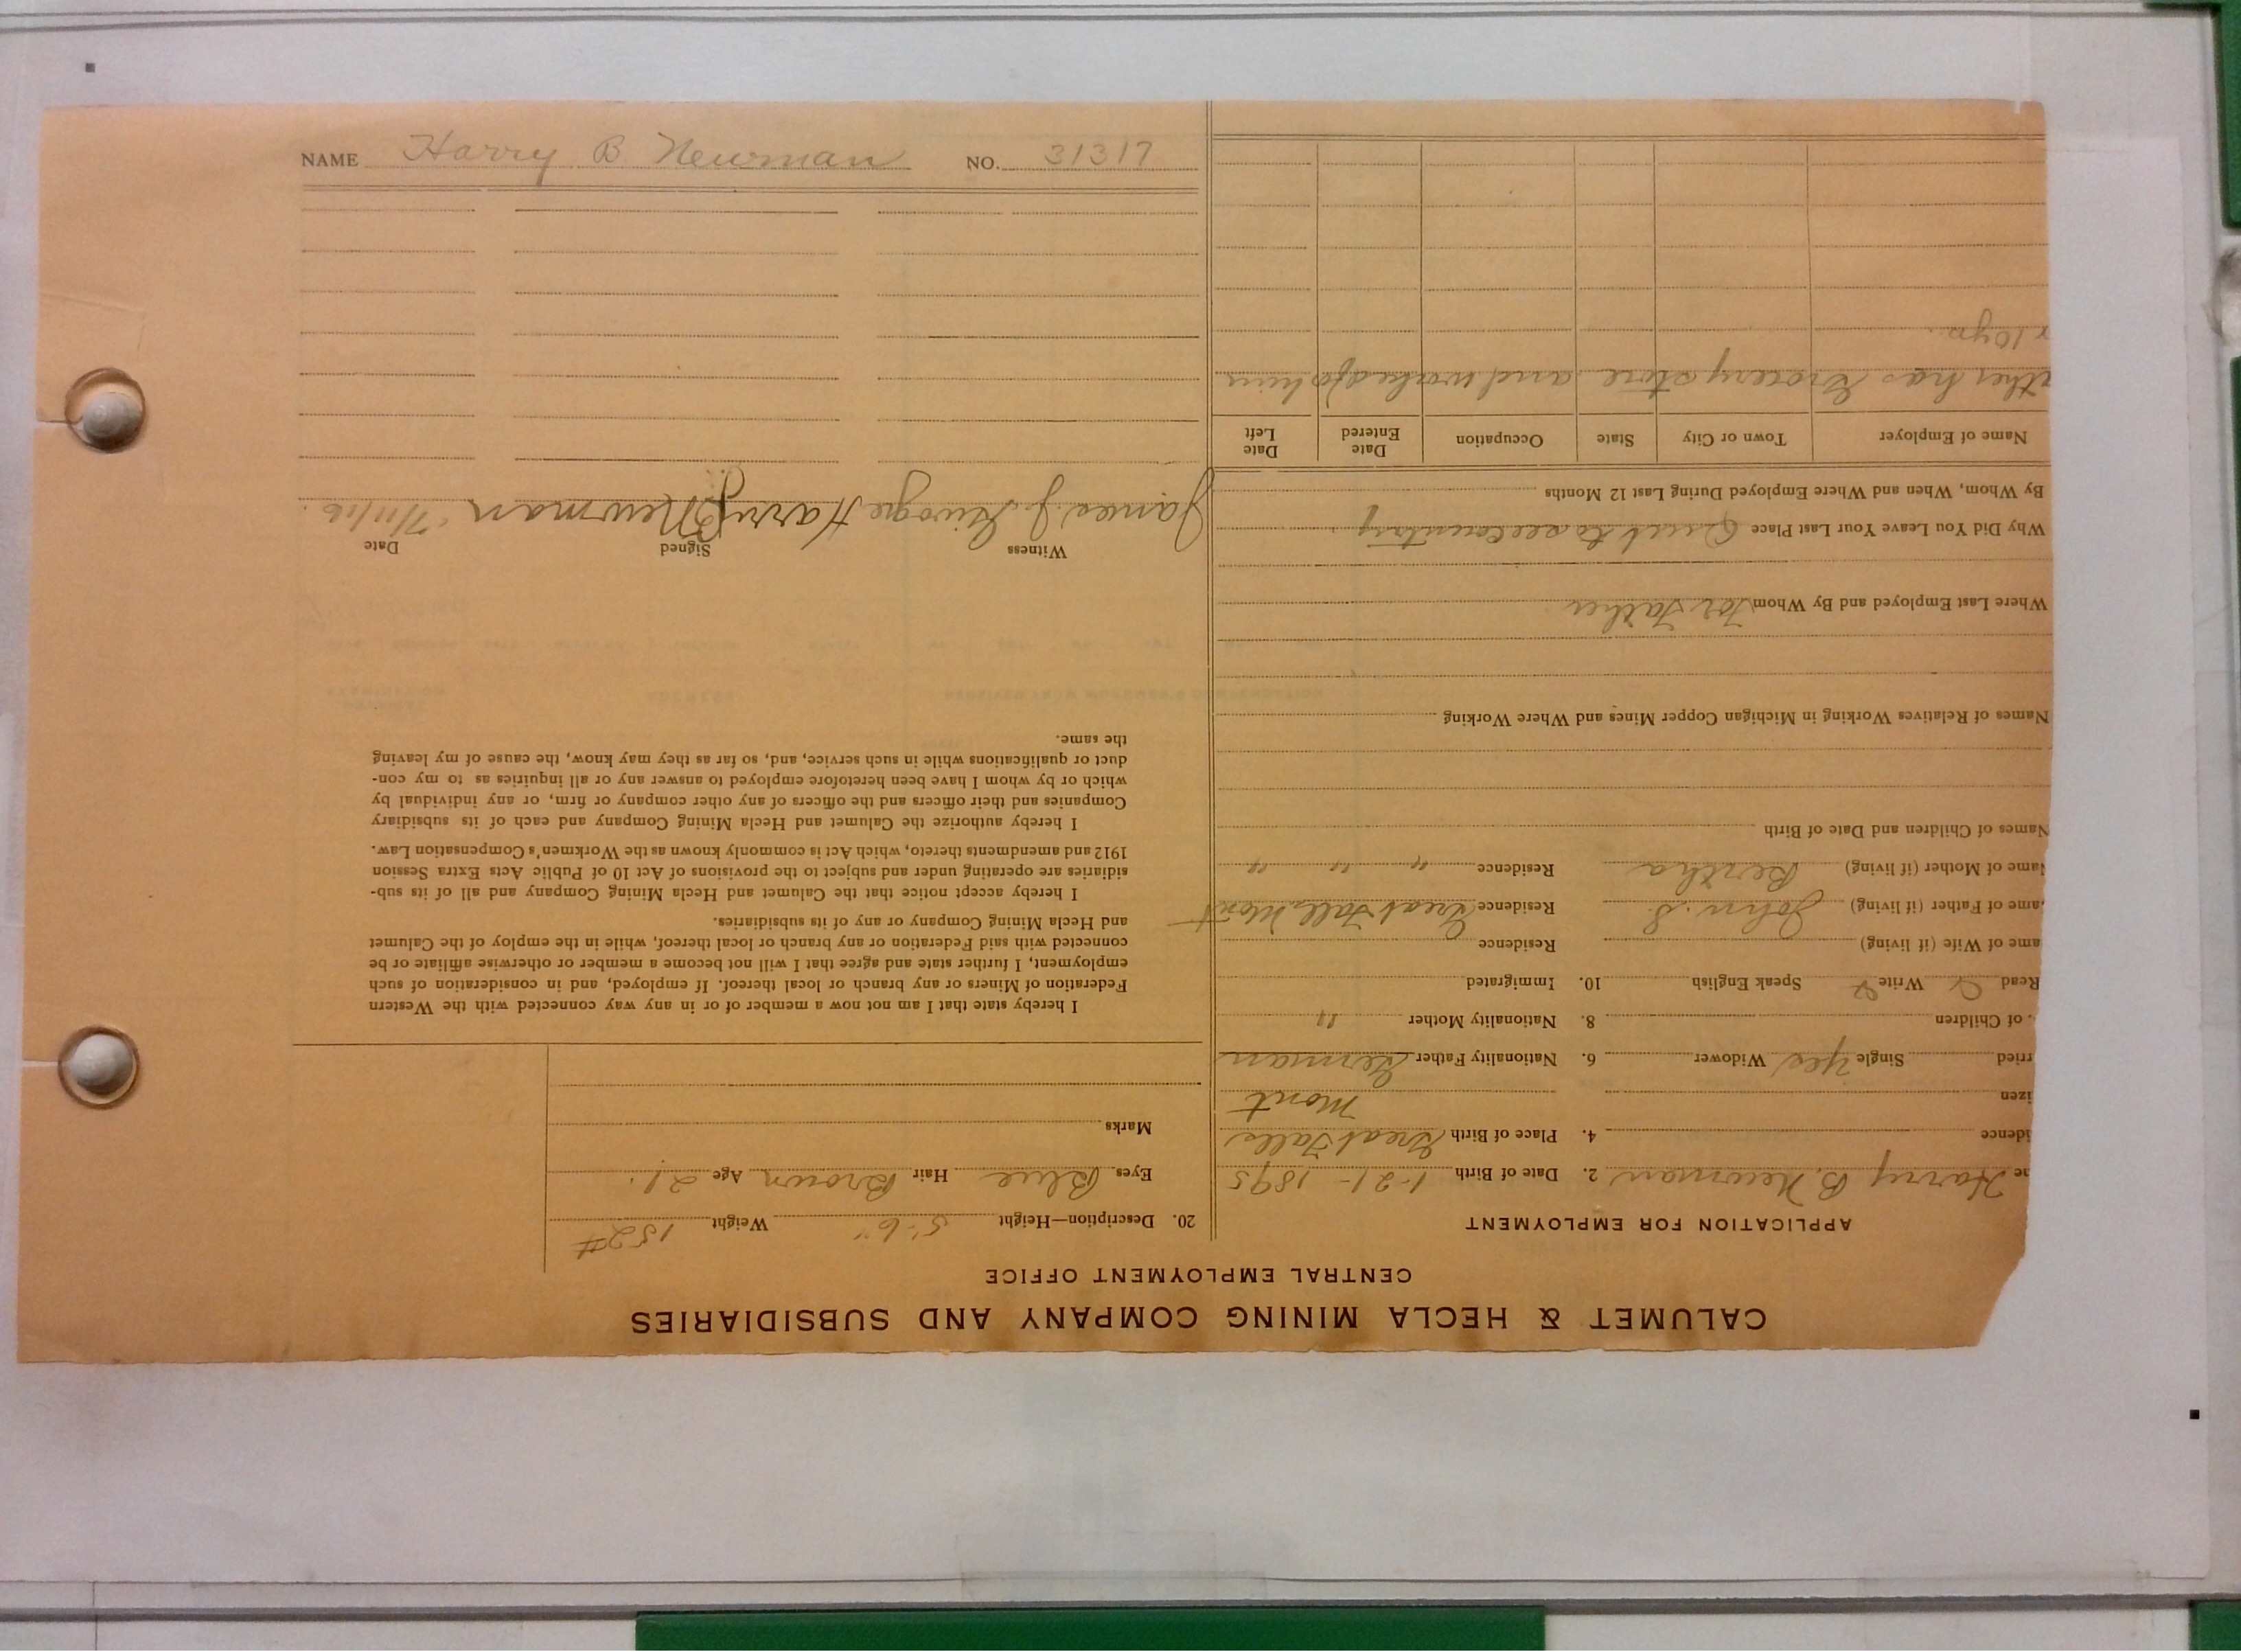 CALUMET & HECLA MINING COMPANY AND SUBSIDIARIES
CENTRAL EMPLOYMENT OFFICE
APPLICATION FOR EMPLOYMENT
Harry B. Newman 2. Date of Birth 1-21-1895
idence 4. Place of Birth Great Falls
izen Mont
ried Single Yes Widower 6. Nationality Father German
. of Children 8. Nationality Mother "
Read Write Speak English 10. Immigrated
ame of Wife (if living) Residence
ame of Father (if living) John. S. Residence Great Falls Mont
Name of Mother (if living) Bertha Residence " " "
Names of Children and Date of Birth
Names of Relatives Working in Michigan Copper Mines and Where Working
Where Last Employed and By Whom For Father
Why Did You Leave Your Last Place Quit to see country
By Whom, When and Where Employed During Last 12 Months
Name of Employer Town or City State Occupation Date Entered Date Left
ther has Grocery store and worked for him
r 10 yrs.
20. Description—Height 5'-6" Weight 152#
Eyes Blue Hair Brown Age 21.
Marks
I hereby state that I am not now a member of or in any way connected with the Western
Federation of Miners or any branch or local thereof. If employed, and in consideration of such
employment, I further state and agree that I will not become a member or otherwise affiliate or be
connected with said Federation or any branch or local thereof, while in the employ of the Calumet
and Hecla Mining Company or any of its subsidiaries.
I hereby accept notice that the Calumet and Hecla Mining Company and all of its sub-
sidiaries are operating under and subject to the provisions of Act 10 of Public Acts Extra Session
1912 and amendments thereto, which Act is commonly known as the Workmen's Compensation Law.
I hereby authorize the Calumet and Hecla Mining Company and each of its subsidiary
Companies and their officers and the officers of any other company or firm, or any individual by
which or by whom I have been heretofore employed to answer any or all inquiries as to my con-
duct or qualifications while in such service, and, so far as they may know, the cause of my leaving
the same.
Witness Signed Date
James J. Harry B Newman
NAME Harry B Newman NO. 31317